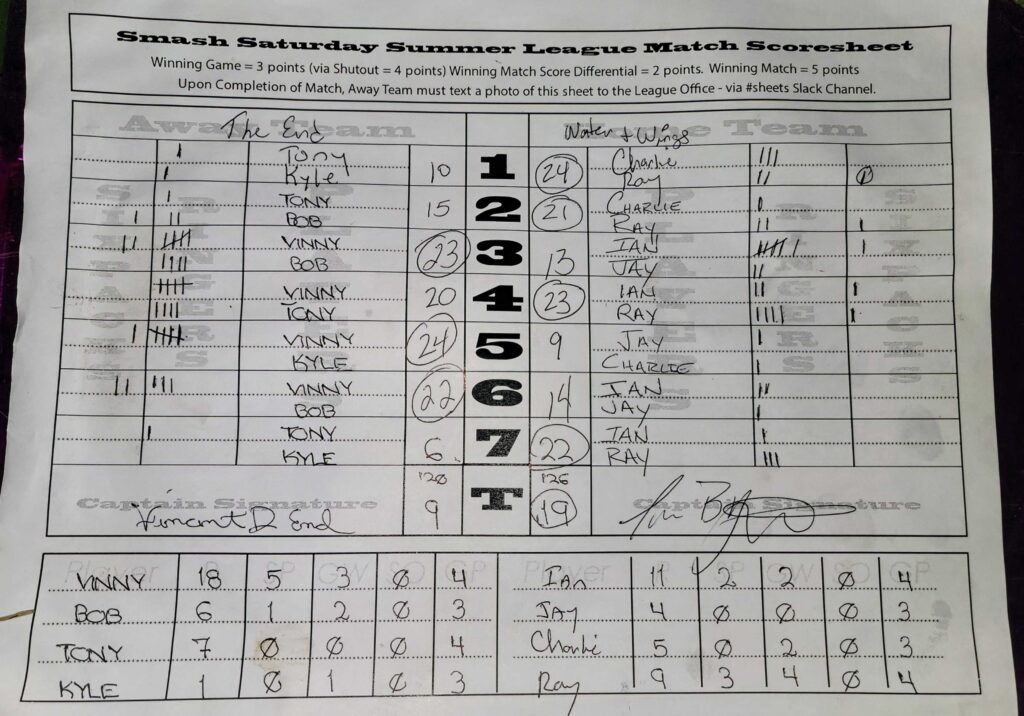 Smash Saturday Summer League Match Scoresheet
Winning Game = 3 points (via Shutout = 4 points) Winning Match Score Differential = 2 points. Winning Match = 5 points
Upon Completion of Match, Away Team must text a photo of this sheet to the League Office - via #sheets Slack Channel.
Away Team The End Water & Wings Home Team
SIXPACKS RINGERS PLAYERS PLAYERS RINGERS SIXPACKS
Tony 10 1 24 Charlie
Kyle Ray Ø
TONY 15 2 21 CHARLIE
BOB RAY
VINNY 23 3 13 IAN
BOB JAY
VINNY 20 4 23 IAN
TONY RAY
VINNY 24 5 9 JAY
KYLE CHARLIE
VINNY 22 6 14 IAN
BOB JAY
TONY 6 7 22 IAN
KYLE RAY
120 126
Captain Signature 9 T 19 Captain Signature
Vincent D End
Player R SP GW SO GP Player R SP GW SO GP
VINNY 18 5 3 Ø 4 Ian 11 2 2 Ø 4
BOB 6 1 2 Ø 3 JAY 4 Ø Ø Ø 3
TONY 7 Ø Ø Ø 4 Charlie 5 Ø 2 Ø 3
KYLE 1 Ø 1 Ø 3 Ray 9 3 4 Ø 4